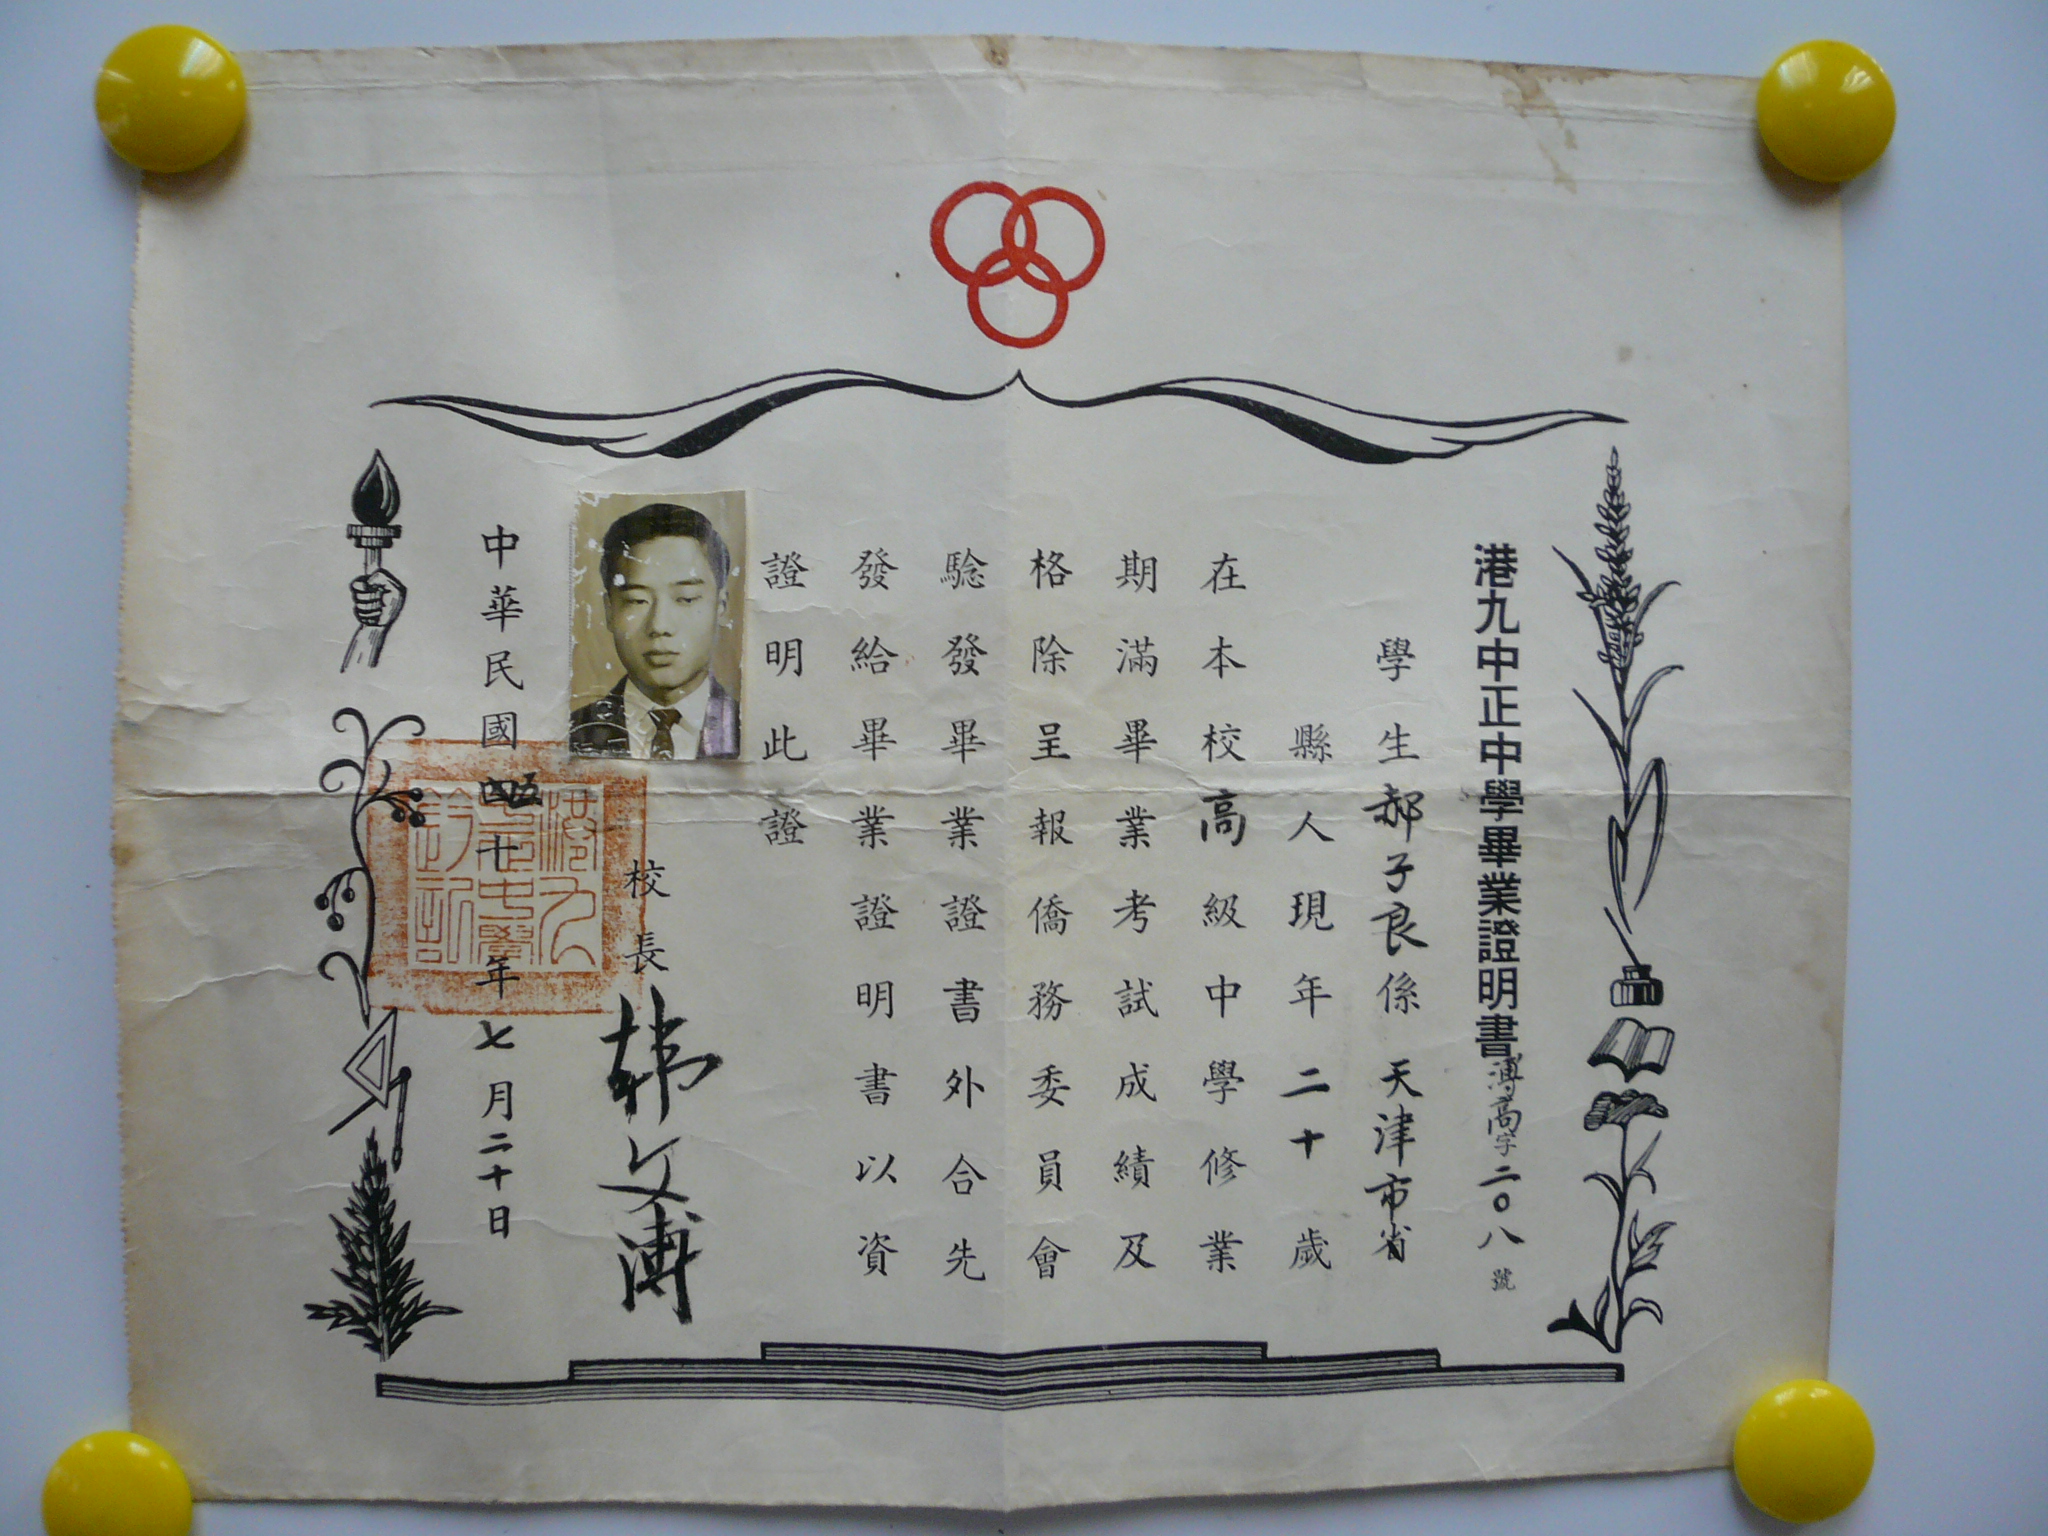 港九中正中學畢業證明書溥高字二〇八號
學生郝子良係天津市省
縣人現年二十歲
在本校高級中學修業
期滿畢業考試成績及
格除呈報僑務委員會
驗發畢業證書外合先
發給畢業證明書以資
證明此證
校長韓文溥
中華民國五十年七月二十日